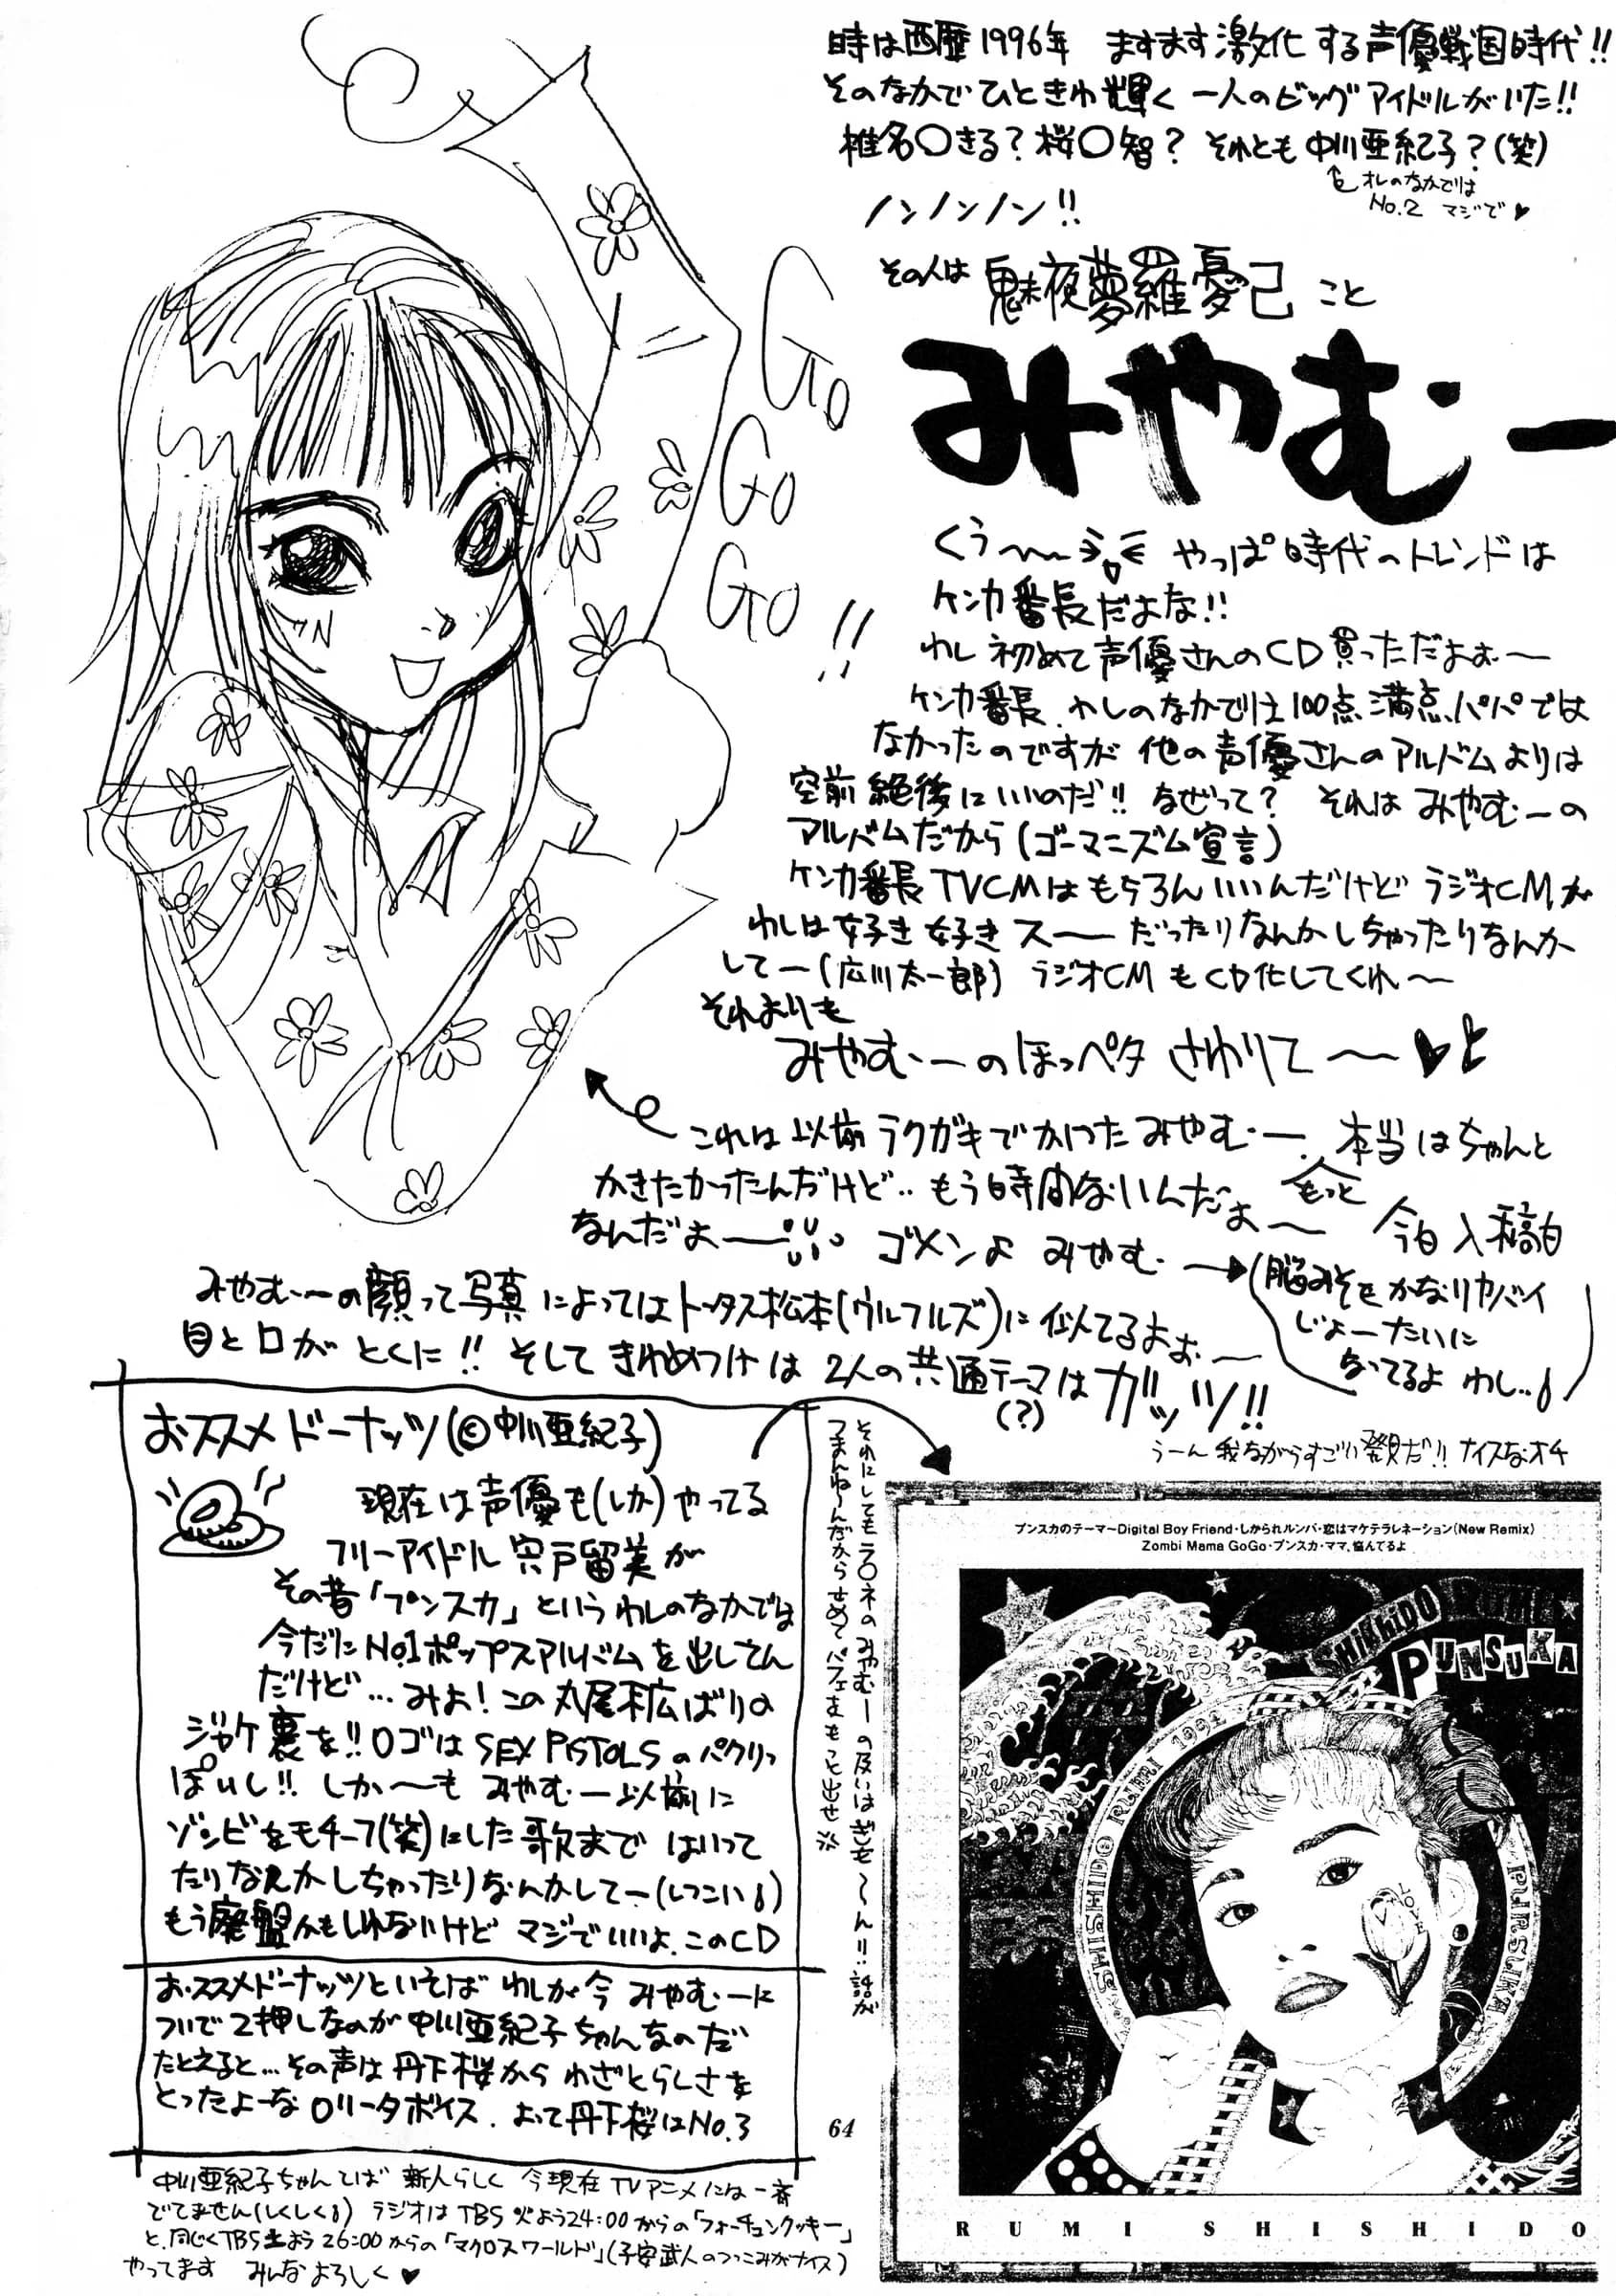 時は西暦1996年 ますます激化する声優戦国時代!!
そのなかでひときわ輝く 一人のビッグアイドルがいた!!
椎名〇きる?桜〇智? それとも中川亜紀子?(笑)
オレのなかでは
No.2 マジで♥
ノンノンノン!!
その人は 魅夜夢羅憂己 こと
みやむー
Go
Go
Go
!!
くぅ〜〜 やっぱ時代のトレンドは
ケンカ番長だよな!!
わし初めて声優さんのCD買っただよぉ〜
ケンカ番長、わしのなかでは100点満点パパでは
なかったのですが 他の声優さんのアルバムよりは
空前絶後にいいのだ!! なぜって? それはみやむーの
アルバムだから(ゴーマニズム宣言)
ケンカ番長TVCMはもちろんいいんだけど ラジオCMが
わしは好き好きスーー だったりなんかしちゃったりなんか
してー(広川太一郎) ラジオCMもCD化してくれ〜
それよりも
みやむーのほっぺタ さわりて〜♥
これは以前ラクガキでかいたみやむー、本当はちゃんと
かきたかったんだけど‥もう時間ないんだよ〜
もっと
今日入稿日
なんだよー ゴメンよ みやむー→
(脳みそもかなりヤバイ
じょーたいに
なってるよ わし‥)
みやむーの顔って写真によってはトータス松本(ウルフルズ)に似てるよぉ〜
目と口がとくに!! そしてきわめつけは2人の共通テーマはガッツ!!
(?)
うーん我ながらすごい発見だ!! ナイスなオチ
おススメドーナッツ(©中川亜紀子)
現在は声優も(しか)やってる
フリーアイドル宍戸留美が
その昔「プンスカ」というわしのなかでは
今だにNo.1ポップスアルバムを出してん
だけど…みよ!この丸尾末広ばりの
ジャケ裏を!!ロゴはSEX PISTOLSのパクリっ
ぽいし!! しか〜も みやむー以前に
ゾンビをモチーフ(笑)にした歌まで はいって
たりなんかしちゃったりなんかしてー(しつこい)
もう廃盤かもしれないけど マジでいいよ、このCD
おススメドーナッツといえば わしが今 みやむーに
ついで2押しなのが中川亜紀子ちゃんなのだ
たとえると…その声は丹下桜からわざとらしさを
とったよーなロリータボイス、よって丹下桜はNo.3
中川亜紀子ちゃんてば 新人らしく 今現在TVアニメには一音
でてません(しくしく) ラジオはTBS火よう24:00からの「フォーチュンクッキー」
と、同じくTBS土よう26:00からの「マクロスワールド」(子安武人のつっこみがナイス)
やってます みんなよろしく♥
それにしてもラ〇ネのみやむーの及いはぎも〜ん!!話が
つまんね〜んだからせめてパフェをもっと出せ※
プンスカのテーマ〜Digital Boy Friend・しかられルンバ・恋はマケテラレネーション(New Remix)
Zombi Mama GoGo・プンスカ・ママ、悩んでるよ
SHISHIDO RUMI
PUNSUKA
SHISHIDO RUMI 1994
PUNSUKA
LOVE
RUMI SHISHIDO
64